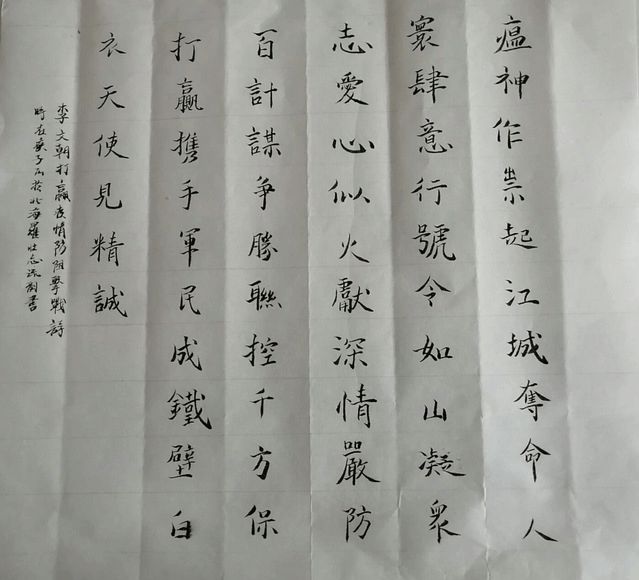 瘟神作祟起江城奪命人
寰肆意行號令如山凝衆
志愛心似火獻深情嚴防
百計謀争勝聯控千方保
打贏携手軍民成鐵壁白
衣天使見精誠
李文朝打贏疫情防阻擊戰詩
時在庚子於北海羅壯志書